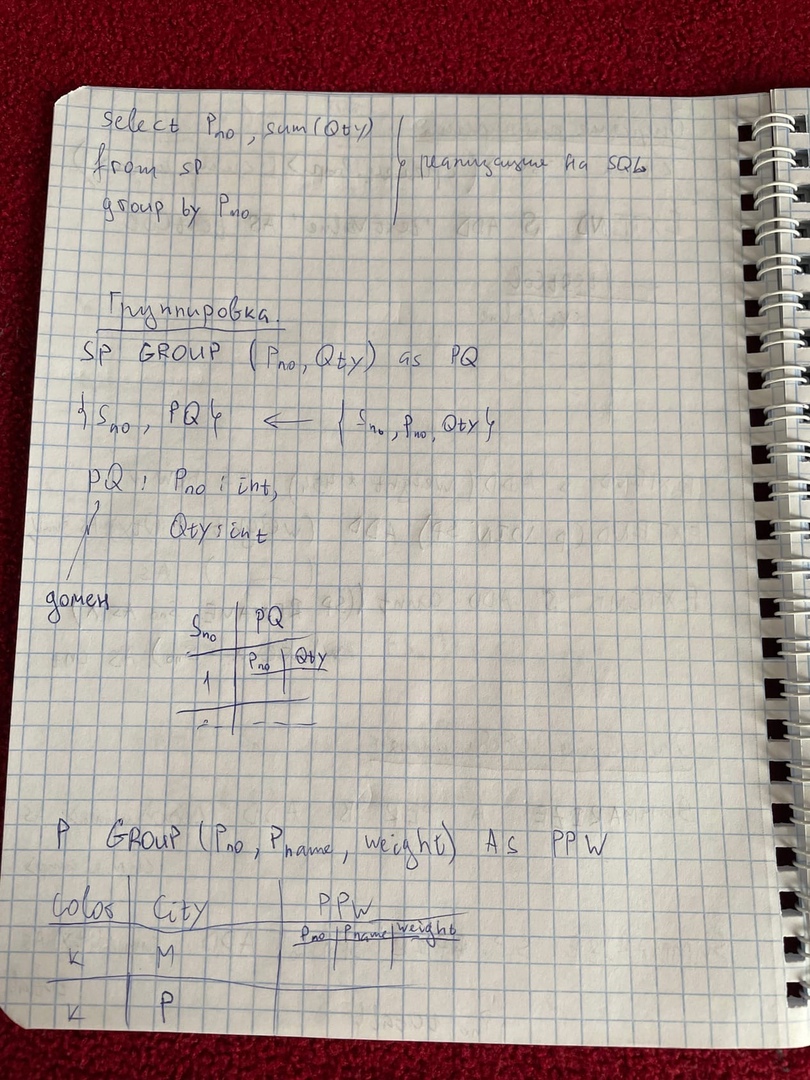 select Pno, sum(Qty)
from sp
group by Pno
реализация на SQL
Группировка.
SP GROUP (Pno, Qty) as PQ
{Sno, PQ} ← {Sno, Pno, Qty}
PQ: Pno: int,
Qty: int
домен
Sno | PQ
Pno | Qty
1
P GROUP (Pno, Pname, weight) AS PPW
Color | City | PPW
Pno | Pname | weight
К | М
К | Р